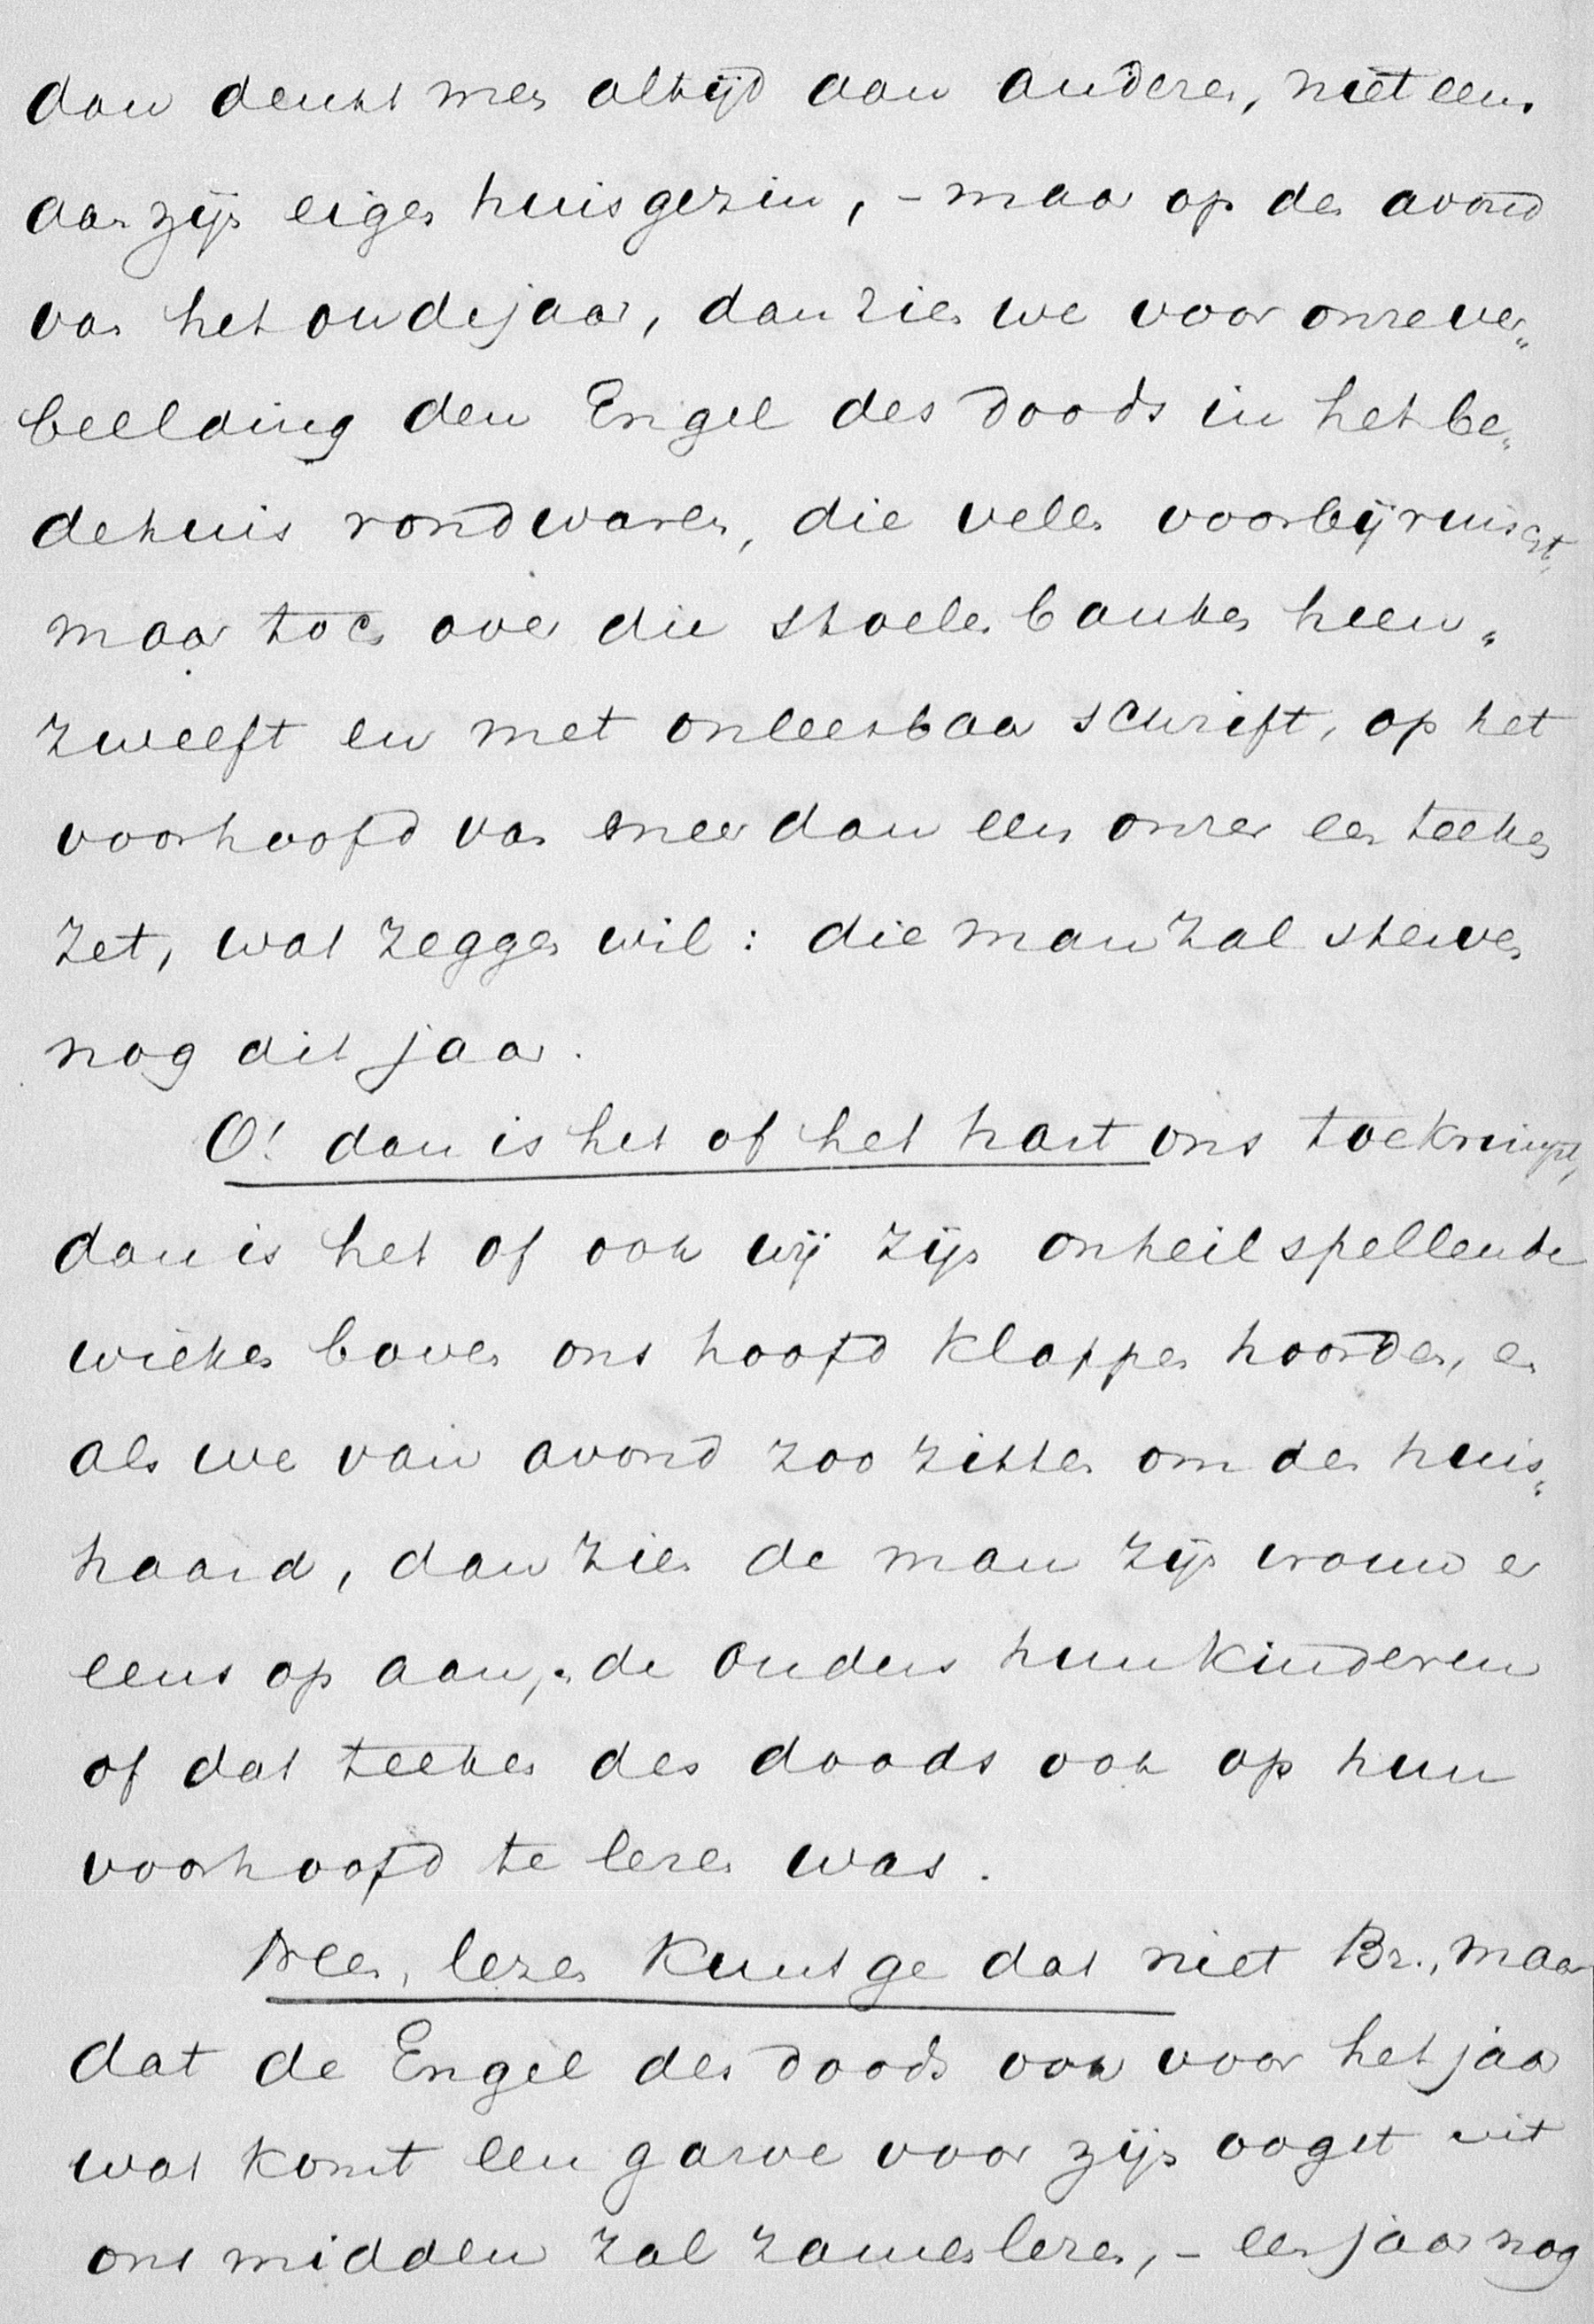 dan denkt men altijd aan anderen, niet eens
aan zijn eigen huisgezin, - maar op den avond
van het oudejaar, dan zien we voor onze ver„
beelding den Engel des doods in het be„
dehuis rondwaren, die velen voorbijruischt,
maar toch over die stoelen banken heen„
zweeft en met onleesbaar schrift, op het
voorhoofd van meer dan een onzer een teeken
zet, wat zeggen wil: die man zal sterven
nog dit jaar.
O! dan is het of het hart ons toeknijpt,
dan is het of ook wij zijn onheilspellende
wieken boven ons hoofd klappen hoorden, en
als we van avond zoo zitten om den huis„
haard, dan zien de man zijn vrouw er
eens op aan, de ouders hun kinderen
of dat teeken des doods ook op hun
voorhoofd te lezen was.
Neen, lezen kunt ge dat niet Br., maar
dat de Engel des doods ook voor het jaar
wat komt een garve voor zijn oogst uit
ons midden zal zamenlezen, - een jaar nog